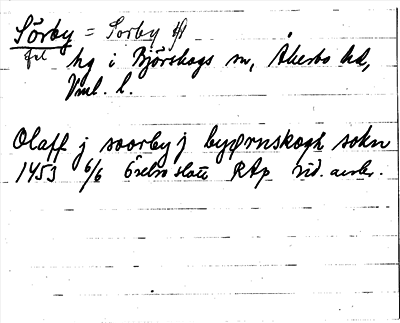 Sörby = Sorby
frl hg i Björskogs sn, Åkerbo hd,
Vml. l.
Olaff j soorby j byørnskogh sokn
1453 6/6 Örebro slott RAp vid. avskr.